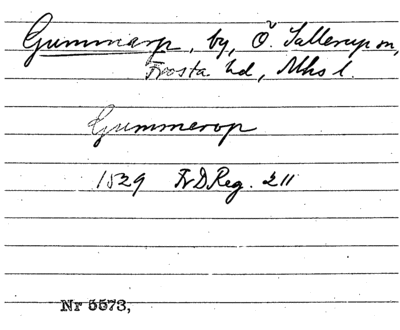 Gummarp, by, Ö. Sallerup sn,
Frosta hd, Mhs l.
Gummerop
1529 FrDReg. 211
Nr 5573,